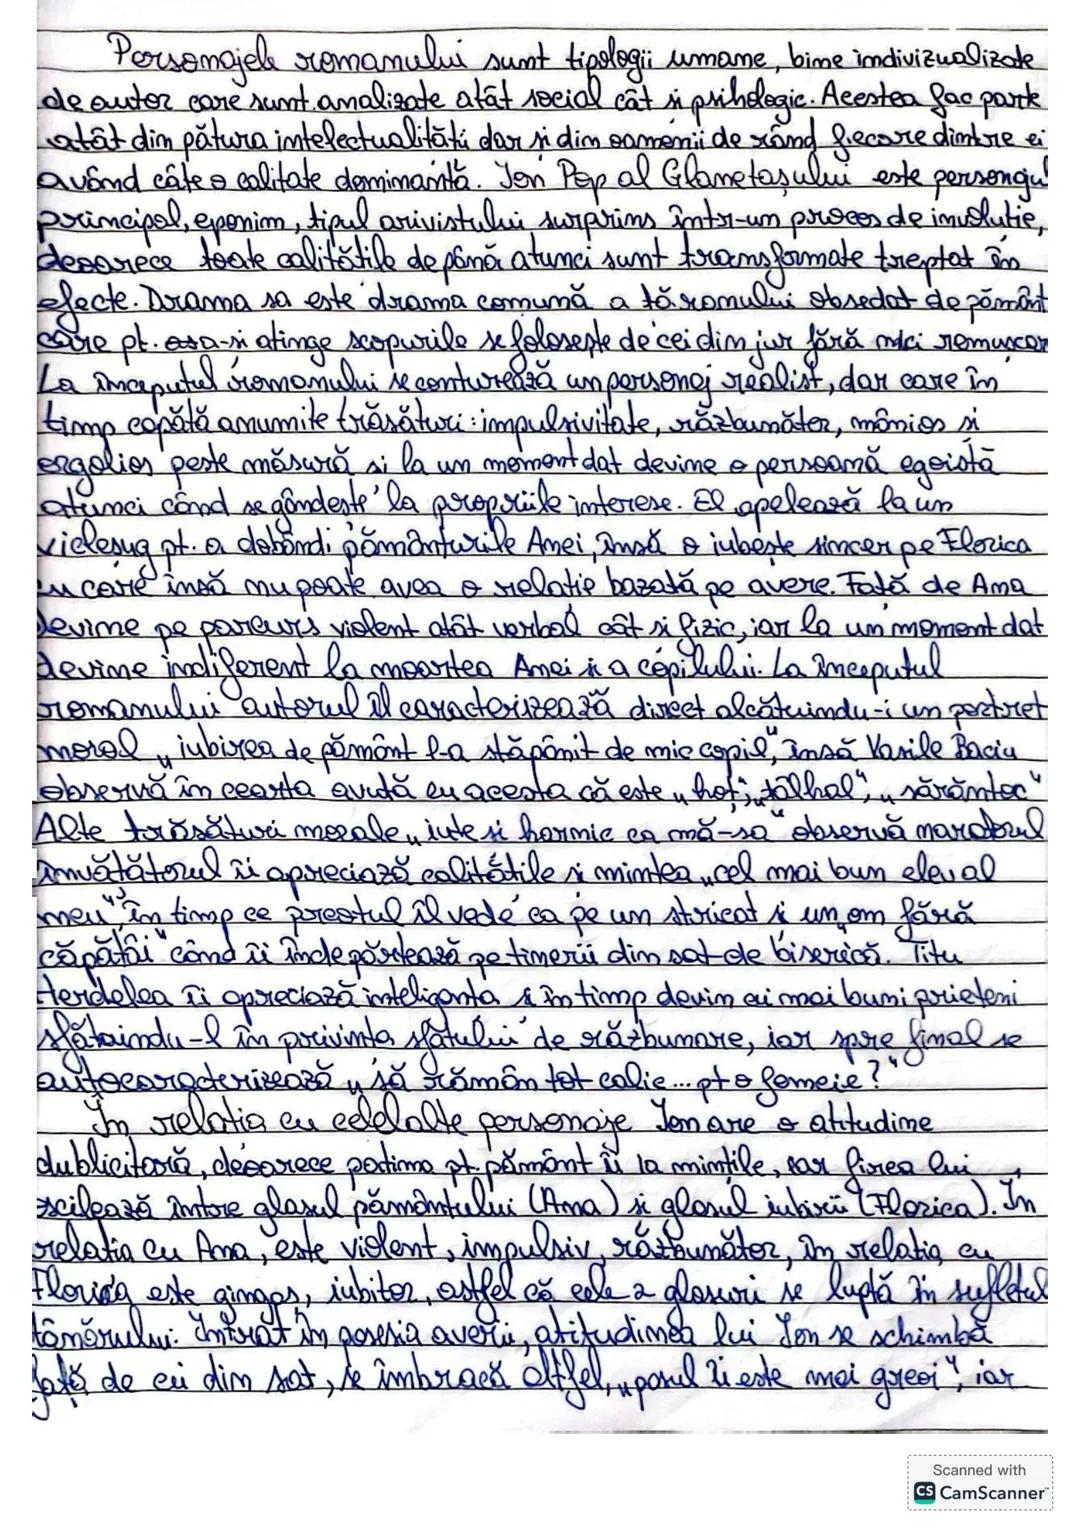 Personajele romanului sunt tipologii umane, bine individualizate
de autor care sunt analizate atât social cât și psihologic. Acestea fac parte
atât din pătura intelectualității dar și din oamenii de rând fiecare dintre ei
având câte o calitate dominantă. Ion Pop al Glanetașului este personajul
principal, eponim, tipul arivistului surprins într-un proces de involuție,
deoarece toate calitățile de până atunci sunt transformate treptat în
efecte. Drama sa este drama comună a țăranului obsedat de pământ
care pt. asa-și atinge scopurile se folosește de cei din jur fără nici remușcar
La începutul romanului se conturează un personaj realist, dar care în
timp capătă anumite trăsături: impulsivitate, răzbunător, mânios și
orgolios peste măsură și la un moment dat devine o persoană egoistă
atunci când se gândește la propriile interese. El apelează la un
vicleșug pt. a dobândi pământurile Anei, însă o iubește sincer pe Florica
cu care însă nu poate avea o relație bazată pe avere. Față de Ana
devine pe parcurs violent atât verbal cât și fizic, iar la un moment dat
devine indiferent la moartea Anei și a copilului. La începutul
romanului autorul îl caracterizează direct alcătuindu-i un portret
moral „iubirea de pământ l-a stăpânit de mic copil", însă Vasile Baciu
observă în cearta avută cu acesta că este „hoț", „tâlhal", „sărăntoc"
Alte trăsături morale „iute și harnic ca mă-sa" observă naratorul
învățătorul îi apreciază calitățile și mintea „cel mai bun elev al
meu" în timp ce preotul îl vede ca pe un stricat și un „om fără
căpătâi" când îi îndepărtează pe tinerii din sat de biserică. Titu
Herdelea îi apreciază inteligența și în timp devin cei mai buni prieteni
sfătuindu-l în privința sfatului de răzbunare, iar spre final se
autocaracterizează „să rămân tot calic... pt o femeie?"
În relația cu celelalte personaje Ion are o atitudine
dublicitară, deoarece patima pt. pământ îi ia mințile, iar firea lui
oscilează între glasul pământului (Ana) și glasul iubirii (Florica). În
relația cu Ana, este violent, impulsiv, răzbunător, în relația cu
Florica este gingaș, iubitor, astfel că cele 2 glasuri se luptă în sufletul
tânărului. Intrat în posesia averii, atitudinea lui Ion se schimbă
față de cei din sat, se îmbracă altfel, „pasul îi este mai greoi", iar
Scanned with
CS CamScanner